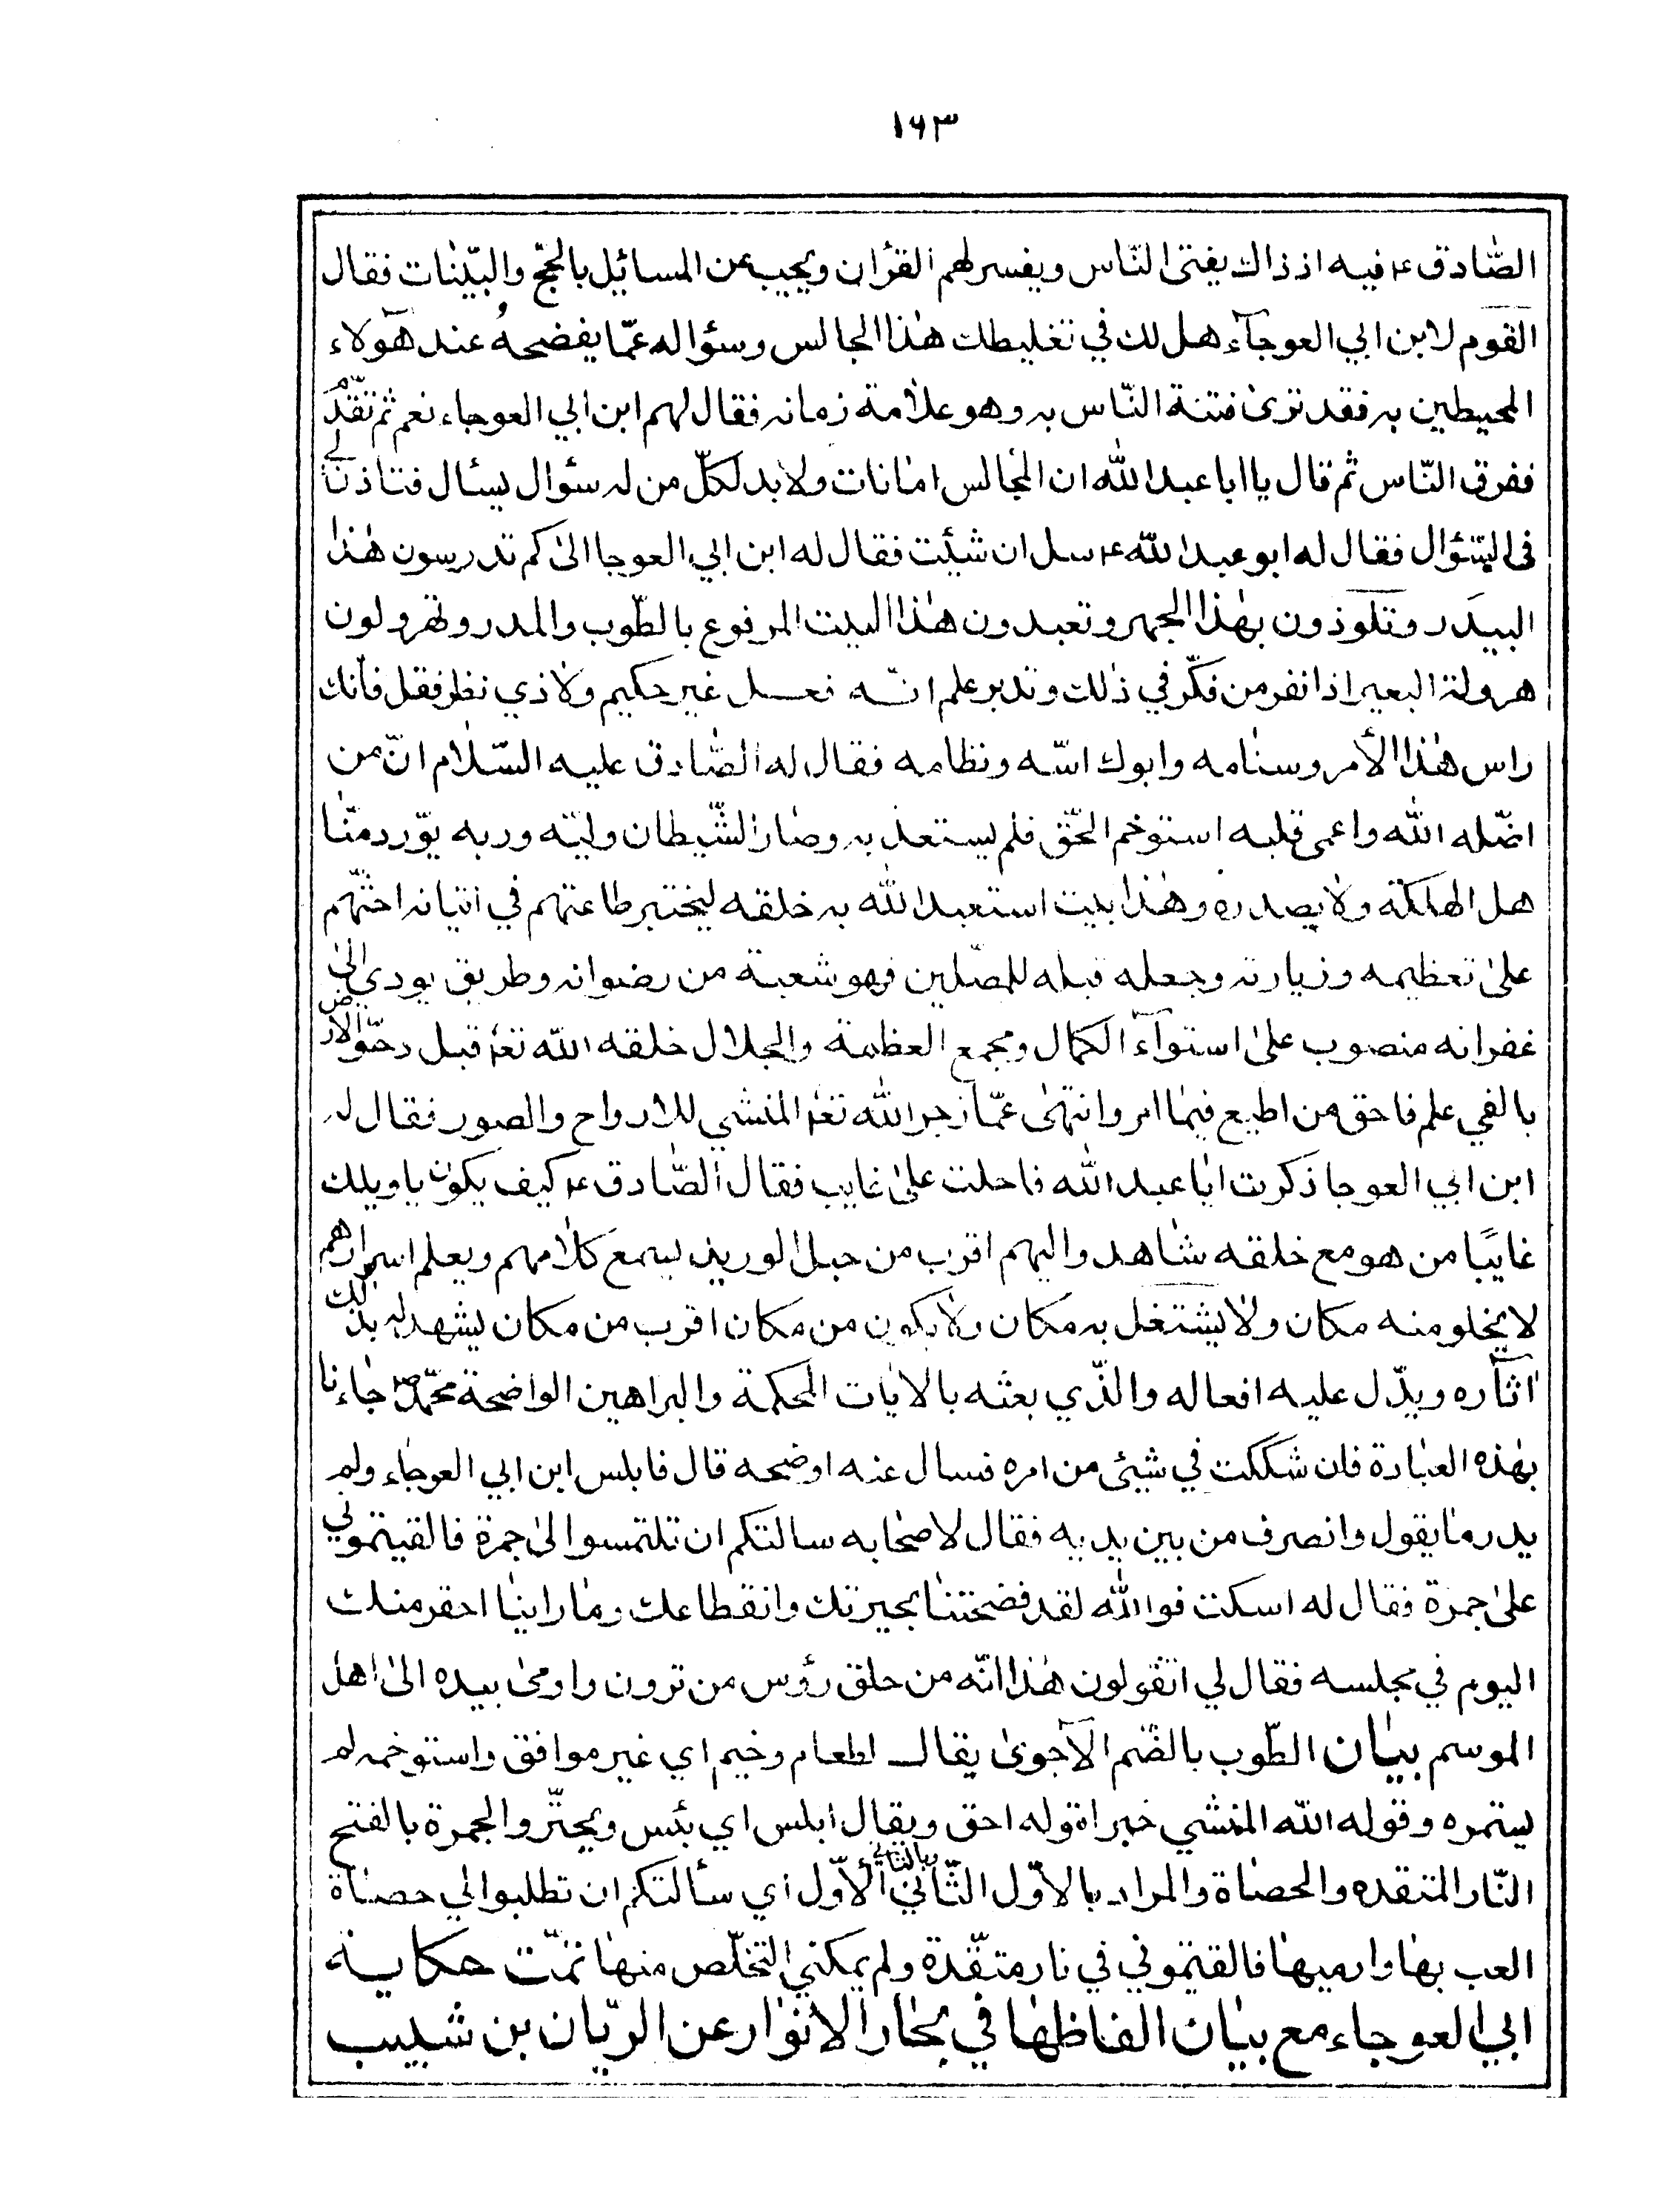 ١٦٣
الصّادق ع فيه اذ ذاك يفتى النّاس ويفسر لهم القرٰان ويجيب عن المسائيل بالحجّ والبيّنات فقال
القوم لابن ابي العوجآء هل لك في تغليطك هٰذا الجالس وسؤاله عمّا يفضحهُ عند هٓولاء
المحيطين به فقد ترىٰ فتنة النّاس به وهو علاٰمة زمانه فقال لهم ابن ابي العوجاء نعم ثم تقدّم
ففرق النّاس ثم قال يا ابا عبد الله ان المجٰالس امٰانات ولا بد لكلّ من له سؤال يسئال فتاذن لي
فى السّؤال فقال له ابو عبد الله ع سل ان شئيت فقال له ابن ابي العوجا الىٰ كم تدرسون هٰذا
البيدَر وتلوذون بهٰذا الحجر وتعبدون هٰذا البيت المرفوع بالطّوب والمدر وتهرولون
هرولة البعير اذا نفر من فكّر في ذٰلك وتدبر علم انّه فعل غير حكيم ولاٰ ذي نظر فقل فأنك
راس هٰذا الأمر وسنٰامه وابوك اسّه ونظامه فقال له الصّادق عليه السّلاٰم انّ من
اضّله الله واعمى قلبه استوخم الحّق فلم يستعذ به وصٰار الشّيطان وليّه وربه يوّرد منٰا
هل الهلكة ولاٰ يصدره وهٰذا بيت استعبد الله به خلقه ليختبر طاعتهم في اتيانه احثّهم
علىٰ تعظيمه وزيارته وجعله قبله للمصّلين فهو شعبة من رضوانه وطريق يودى الىٰ
غفرانه منصوب علىٰ استوآء الكمال ومجمع العظمة والجلال خلقه الله تعٰ قبل دحوّ الارض
بالفي علم فاحق من اطيع فيمٰا امر وانتهىٰ عمّا زجر الله تعٰ المنشي للارواح والصور فقال له
ابن ابي العوجا ذكرت ابٰا عبد الله فاحلت علىٰ غايب فقال الصّادق ع كيف يكون ياويلك
غايبًا من هو مع خلقه شٰاهد واليهم اقرب من حبل الوريد يسمع كلاٰمهم ويعلم اسرارهم
لا يخلو منه مكان ولاٰ يشتغل به مكان ولاٰ يكون من مكان اقرب من مكان يشهد له بذٰلك
آثاره ويدّل عليه افعاله والذّي بعثه بالايات المحكمة والبراهين الواضحة محّمد ص جاءنا
بهٰذه العبٰادة فان شككت في شيئ من امره فسال عنه اوضحه قال فابلس ابن ابي العوجٰاء ولم
يدر مٰا يقول وانصرف من بين يديه فقال لاصحٰابه سالتكم ان تلتمسوا لىٰ جمرة فالقيتموني
علىٰ جمرة فقال له اسكت فوا الله لقد فضحتنٰا بحيرتك وانقطاعك ومٰا راينٰا احقر منك
اليوم في مجلسه فقال لي اتقولون هٰذا انّه من حلق رؤس من ترون واومىٰ بيده الىٰ اهل
الموسم بيٰان الطّوب بالضّم الآجوىٰ يقال لطعام وخيم اي غير موافق واستوخمه لم
يستمره وقوله الله المنشي خبر اقوله احق ويقال ابلس اي يئس ويحيّر والجمرة بالفتح
النّار المتقده والحصٰاة والمراد بالأوّل الثّاني وبالثاني الأوّل اي سألتكم ان تطلبوا لي حصٰاة
العب بهٰا وارميهٰا فالقيتموني في نار متقّدة ولم يمكني التخلّص منهٰا تمّت حكاية
ابي العوجاء مع بيٰان الفاظهٰا في بحٰار الانوٰار عن الريّان بن شبيب